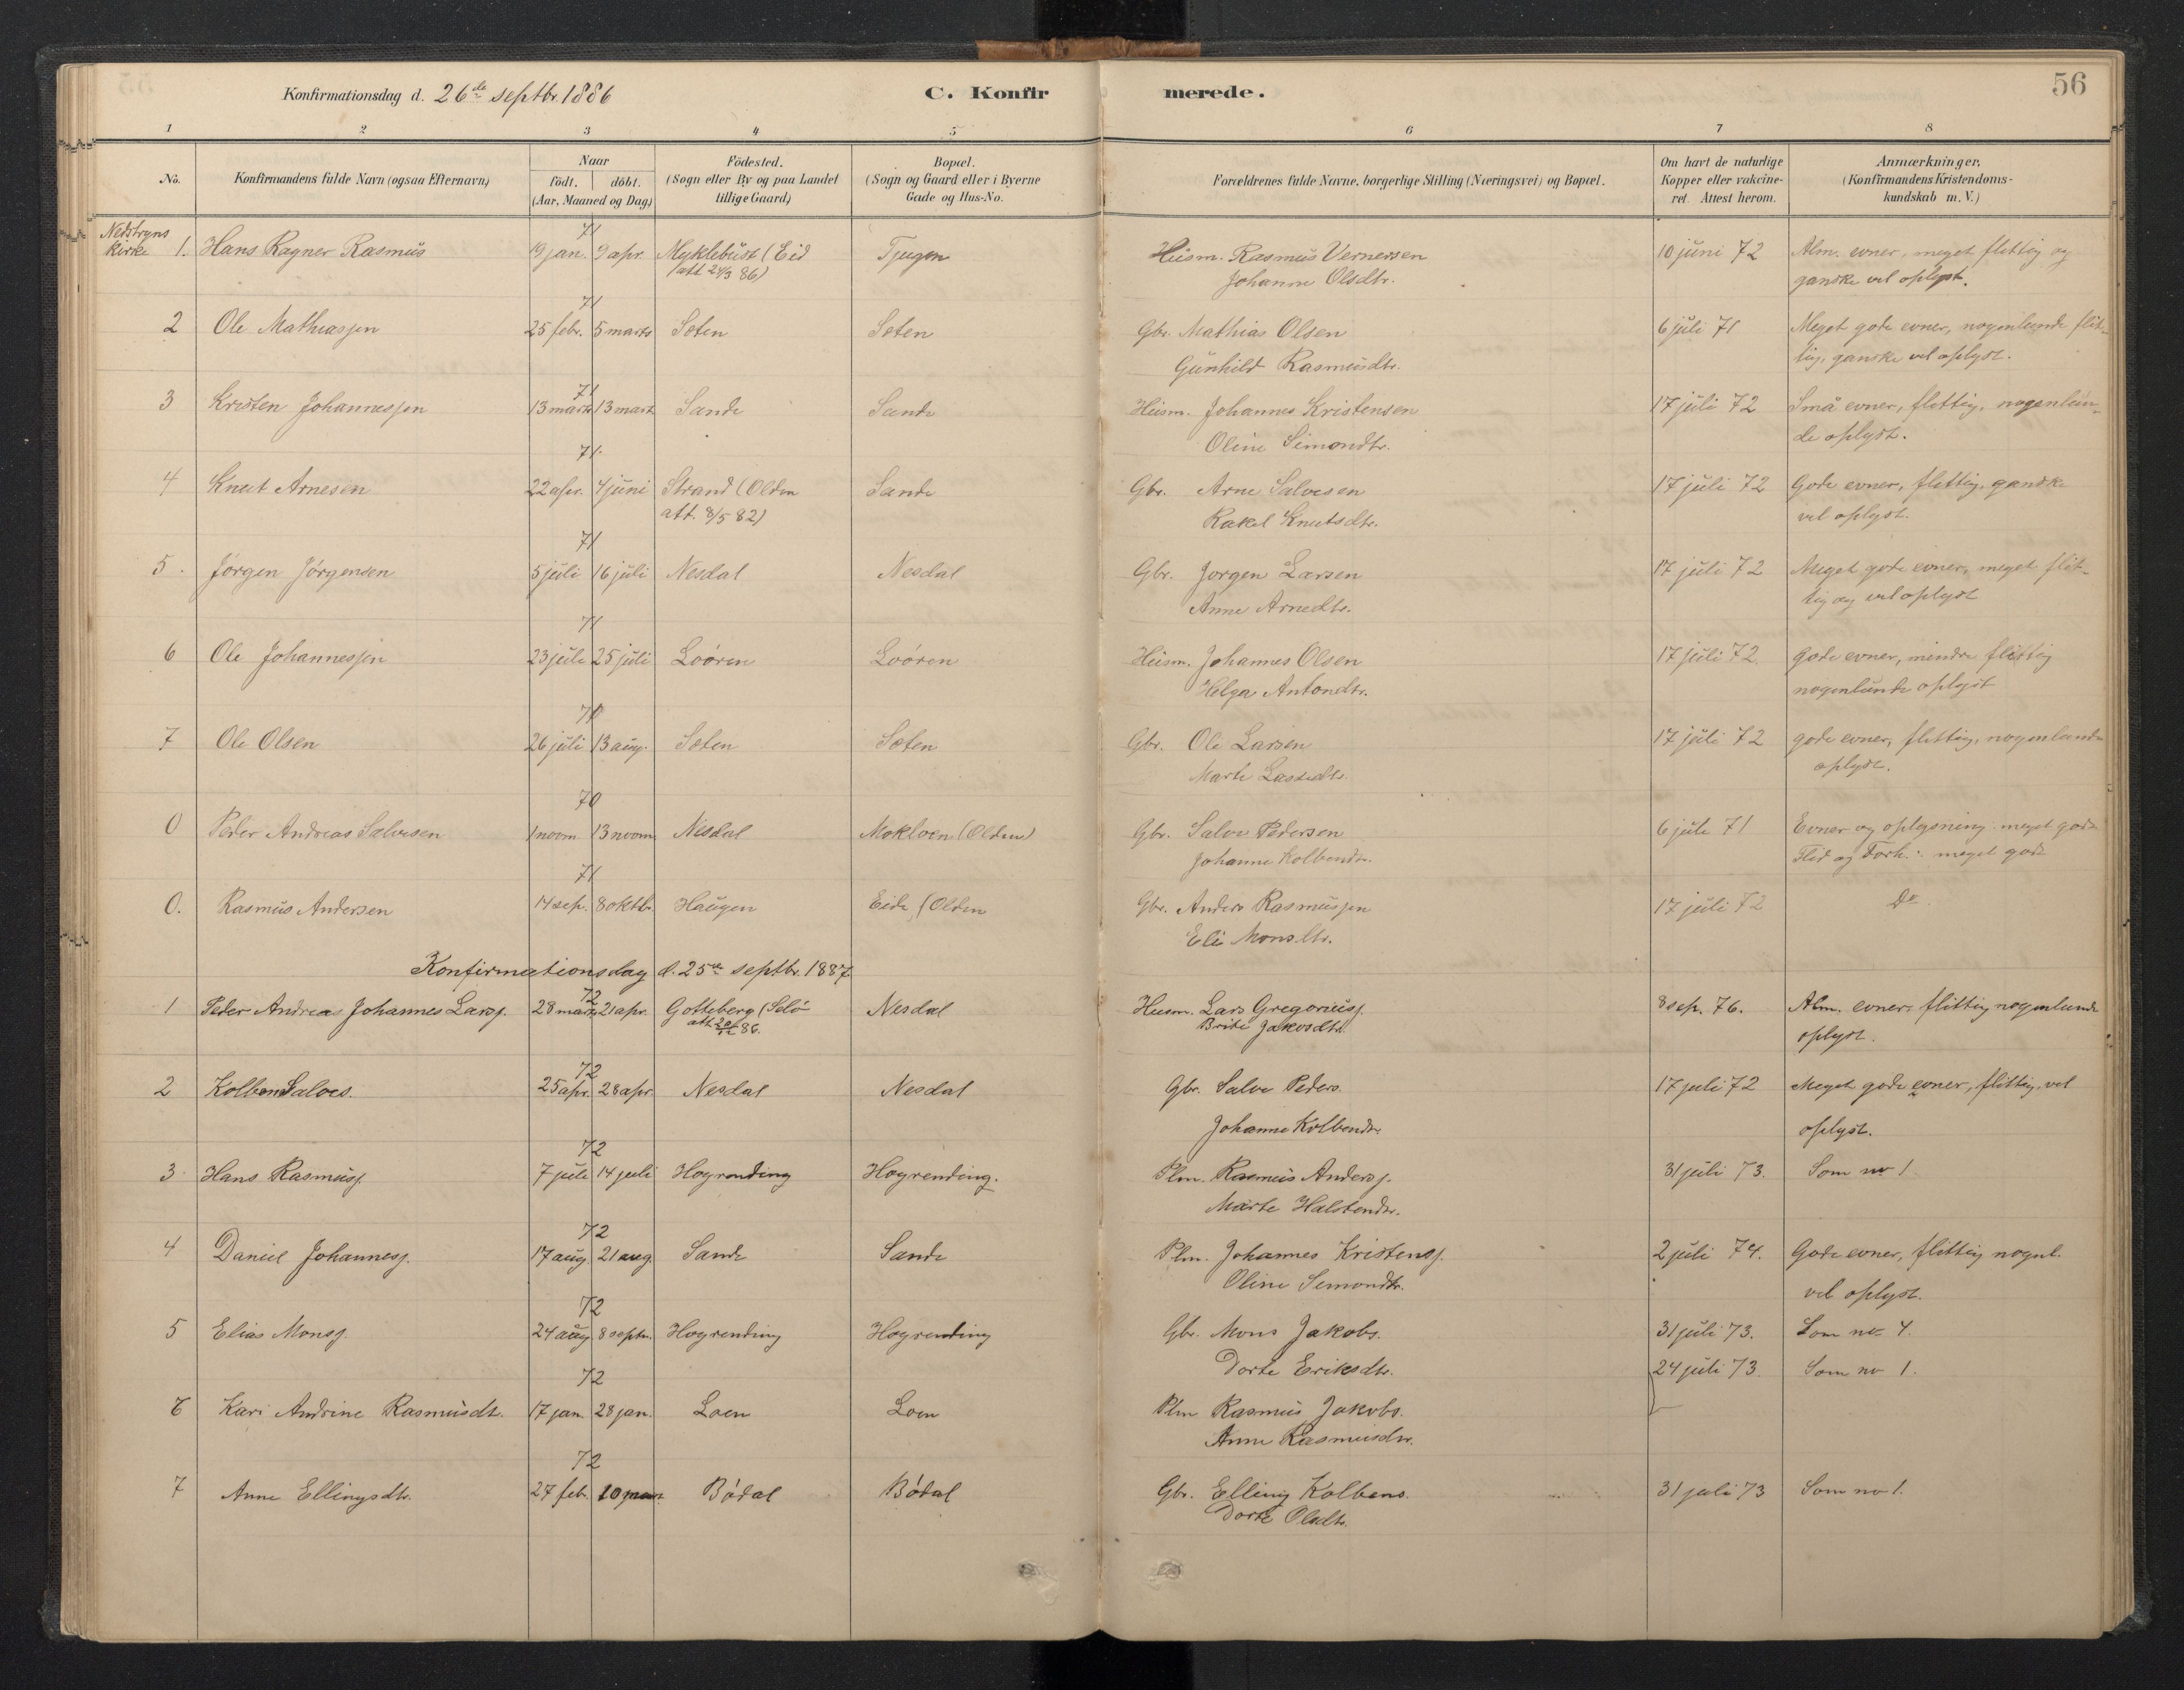 Konfirmationsdag d. 26de septbr. 1886
C. Konfirmerede.
56
1 2 3 4 5 6 7 8
No.
Konfirmandens fulde Navn (ogsaa Efternavn)
Naar
födt. döbt.
(Aar, Maaned og Dag)
Födested.
(Sogn eller By og paa Landet
tillige Gaard)
Bopæl.
(Sogn og Gaard eller i Byerne
Gade og Hus-No.
Forældrenes fulde Navne, borgerlige Stilling (Næringsvei) og Bopæl.
Om havt de naturlige
Kopper eller vakcine-
ret. Attest herom.
Anmærkninger.
(Konfirmandens Kristendoms-
kundskab m. V.)
Nedstryns
kirke
71
1. Hans Ragner Rasmus 19 jan. 9 apr. Myklebust (Eid Tjugen Husm. Rasmus Vernersen 10 juni 72 Alm. evner, meget flittig og
(att 24/3 86) Johanne Olsdtr. ganske vel oplyst.
71
2 Ole Mathiassen 25 febr. 5 marts Seten Seten Gbr. Mathias Olsen 6 juli 71 Meget gode evner, nogenlunde flit-
Gunhild Rasmusdtr. tig, ganske vel oplyst.
71
3 Kristen Johannessen 13 marts 13 mart Sande Sande Husm. Johannes Kristensen 17 juli 72 Små evner, flittig, nogenlun-
Oline Simondtr. de oplyst.
71.
4 Knut Arnesen 22 apr. 4 juni Strand (Olden Sande Gbr. Arne Salvesen 17 juli 72 Gode evner, flittig, ganske
att. 8/5 82) Rakel Knutsdtr. vel oplyst.
71
5. Jørgen Jørgensen 5 juli 16 juli Nesdal Nesdal Gbr. Jorgen Larsen 17 juli 72 Meget gode evner, meget flit-
Anne Arnedtr. tig og vel oplyst
71
6 Ole Johannessen 23 juli 25 juli Loören Loören Husm. Johannes Olsen 17 juli 72. gode evner, mindre flittig
Helga Antondtr. nogenlunde oplyst
7 Ole Olsen 26 juli 13 aug. Seten Seten Gbr. Ole Larsen 17 juli 72 gode evner, flittig, nogenlunde
Marte Lassedtr. oplyst.
70
0 Peder Andreas Salvesen 1 novm 13 novm Nesdal Mokloen (Olden) Gbr. Salve Pedersen 6 juli 71 Evner og oplysning meget gode
Johanne Kolbendtr. Flid og Forh.: meget gode
71
0. Rasmus Andersen 14 sep. 8 oktb. Haugen Eide (Olden Gbr. Anders Rasmussen 17 juli 72 Do.
Eli Monsdtr.
Konfirmationsdag d. 25de septbr. 1887
72
1 Peder Andreas Johannes Larss. 28 marts 21 apr. Gotteberg (Selö Nesdal Husm. Lars Gregoriuss. 8 sep. 76. Alm. evner, flittig nogenlunde
86. Brite Jakobsdtr. oplyst.
72
2 Kolben Salves. 25 apr. 28 apr. Nesdal Nesdal Gbr. Salve Peders. 17 juli 72 Meget gode evner, flittig, vel
Johanne Kolbendtr. oplyst.
72
3 Hans Rasmuss. 7 juli 14 juli Hogrending Hogrending. Plm. Rasmus Anderss. 31 juli 73. Som no 1
Marte Halstendtr.
72
4 Daniel Johanness. 17 aug. 21 aug. Sande Sande Plm. Johannes Kristenss. 2 juli 74. Gode evner, flittig nognl.
Oline Semondtr. vel oplyst.
72
5 Elias Monss. 24 aug 8 septbr. Hogrending Hogrending Gbr. Mons Jakobs. 31 juli 73. Som no 4.
Dorte Eriksdtr. 24 juli 73. Som no 1.
72
6 Kari Andrine Rasmusdt. 17 jan. 28 jan. Loen Loen Plm Rasmus Jakobs.
Anne Rasmusdtr.
72
7 Anne Ellingsdtr. 27 feb. 10 mars. Bödal Bödal Gbr. Elling Kolbens. 31 juli 73 Som no 1.
Dorte Olsdtr.